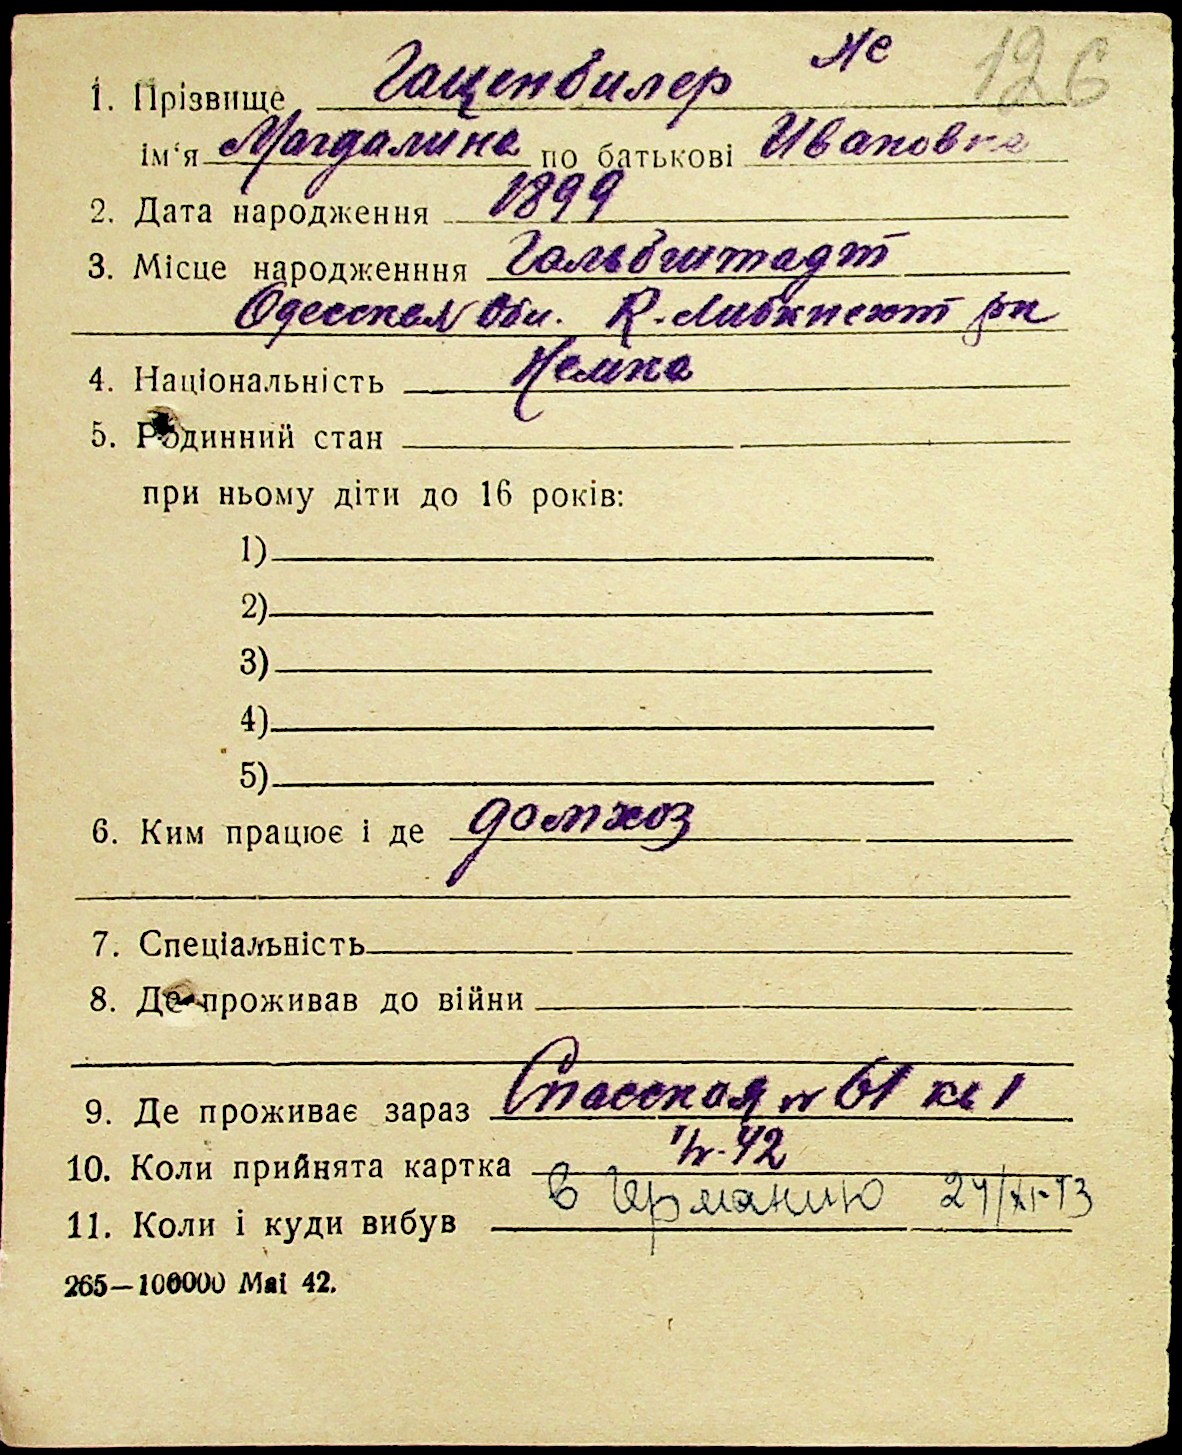 Не 126
1. Прізвище Гаценбилер
ім'я Магдалина по батькові Ивановна
2. Дата народження 1899
3. Місце народженння Гальбштадт
Одесская Обл. К. Либкнехт рн
4. Національність Немка
5. Родинний стан
при ньому діти до 16 років:
1)
2)
3)
4)
5)
6. Ким працює і де домхоз
7. Спеціальність
8. Де проживав до війни
9. Де проживає зараз Спасская № 61 кв 1
10. Коли прийнята картка 42
11. Коли і куди вибув в Германию 24/XI-43
265—100000 Mai 42.